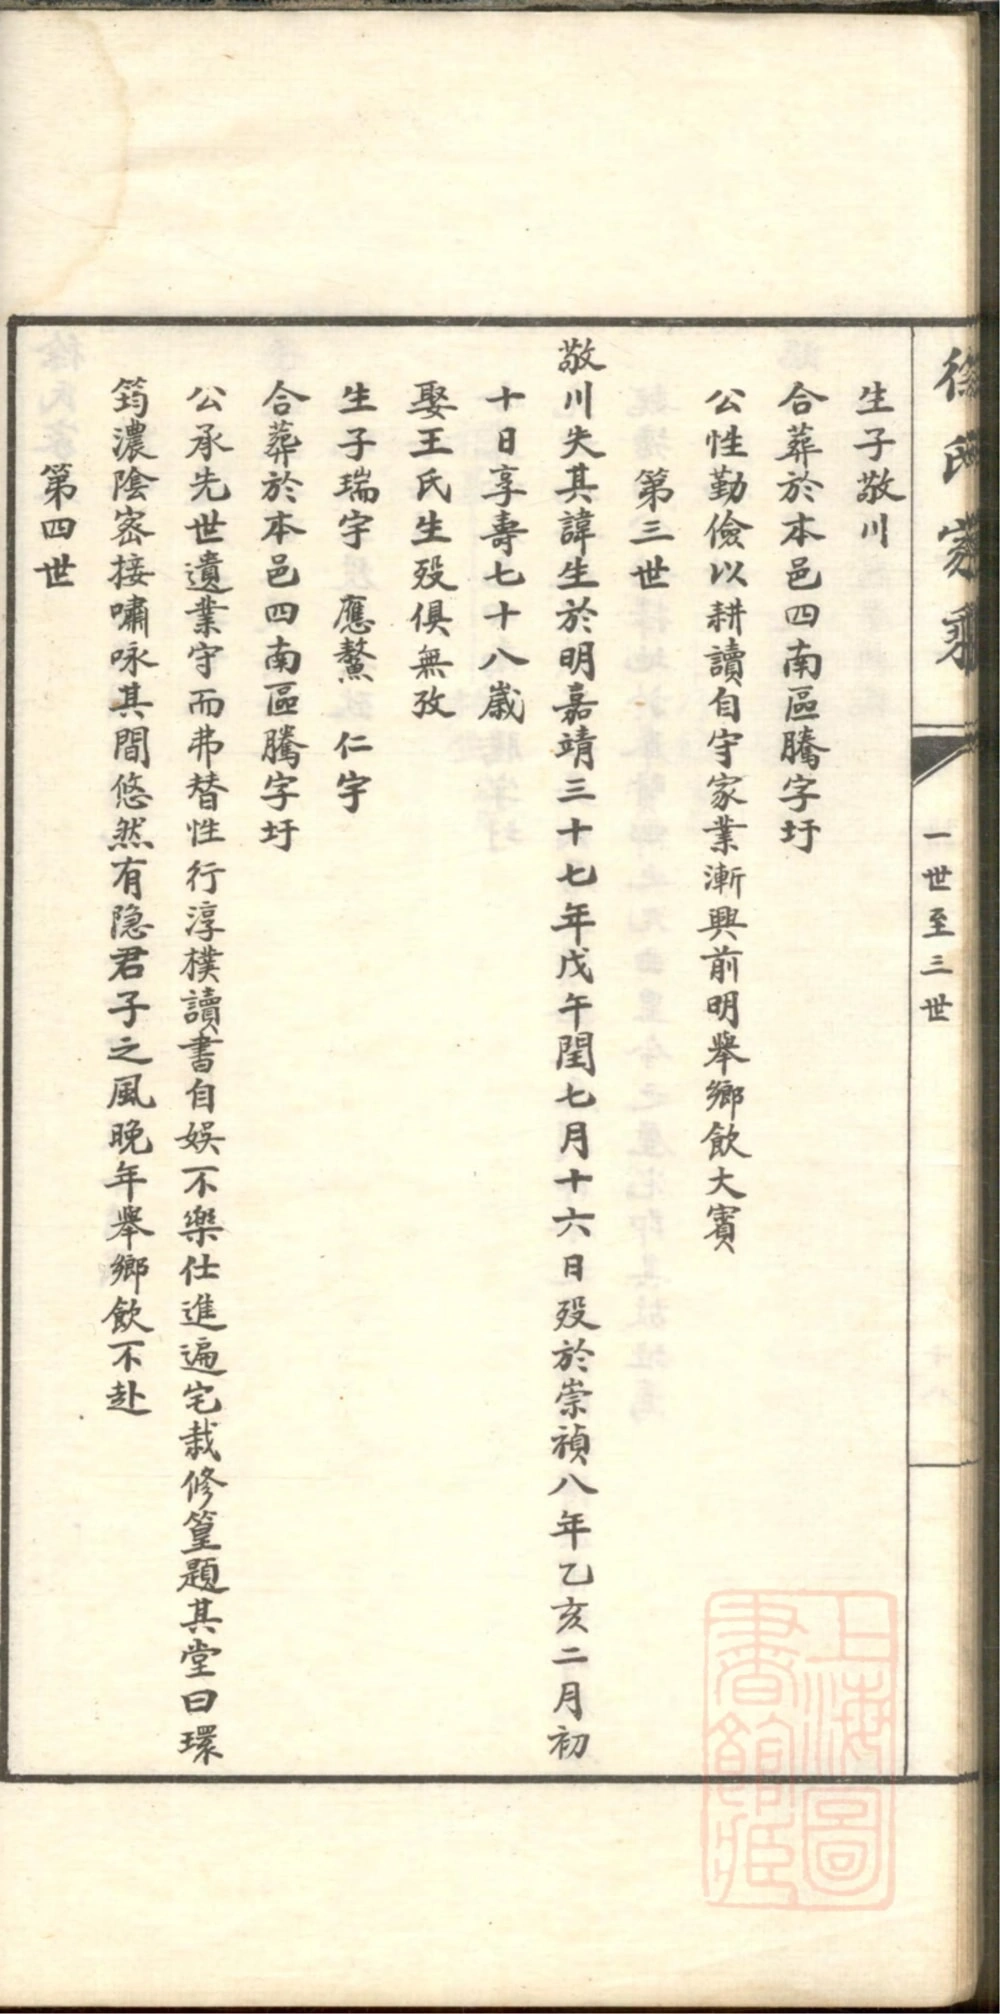 徐氏家乘
一世至三世
生子敬川
合葬於本邑四南區騰字圩
公性勤儉以耕讀自守家業漸興前明舉鄉飲大賓
第三世
敬川失其諱生於明嘉靖三十七年戊午閏七月十六日歿於崇禎八年乙亥二月初
十日享壽七十八歲
娶王氏生歿俱無攷
生子瑞宇 應鰲 仁宇
合葬於本邑四南區騰字圩
公承先世遺業守而弗替性行淳樸讀書自娛不樂仕進遍宅栽修篁題其堂曰環
筠濃陰密接嘯咏其間悠然有隱君子之風晚年舉鄉飲不赴
第四世
上海圖
書館藏